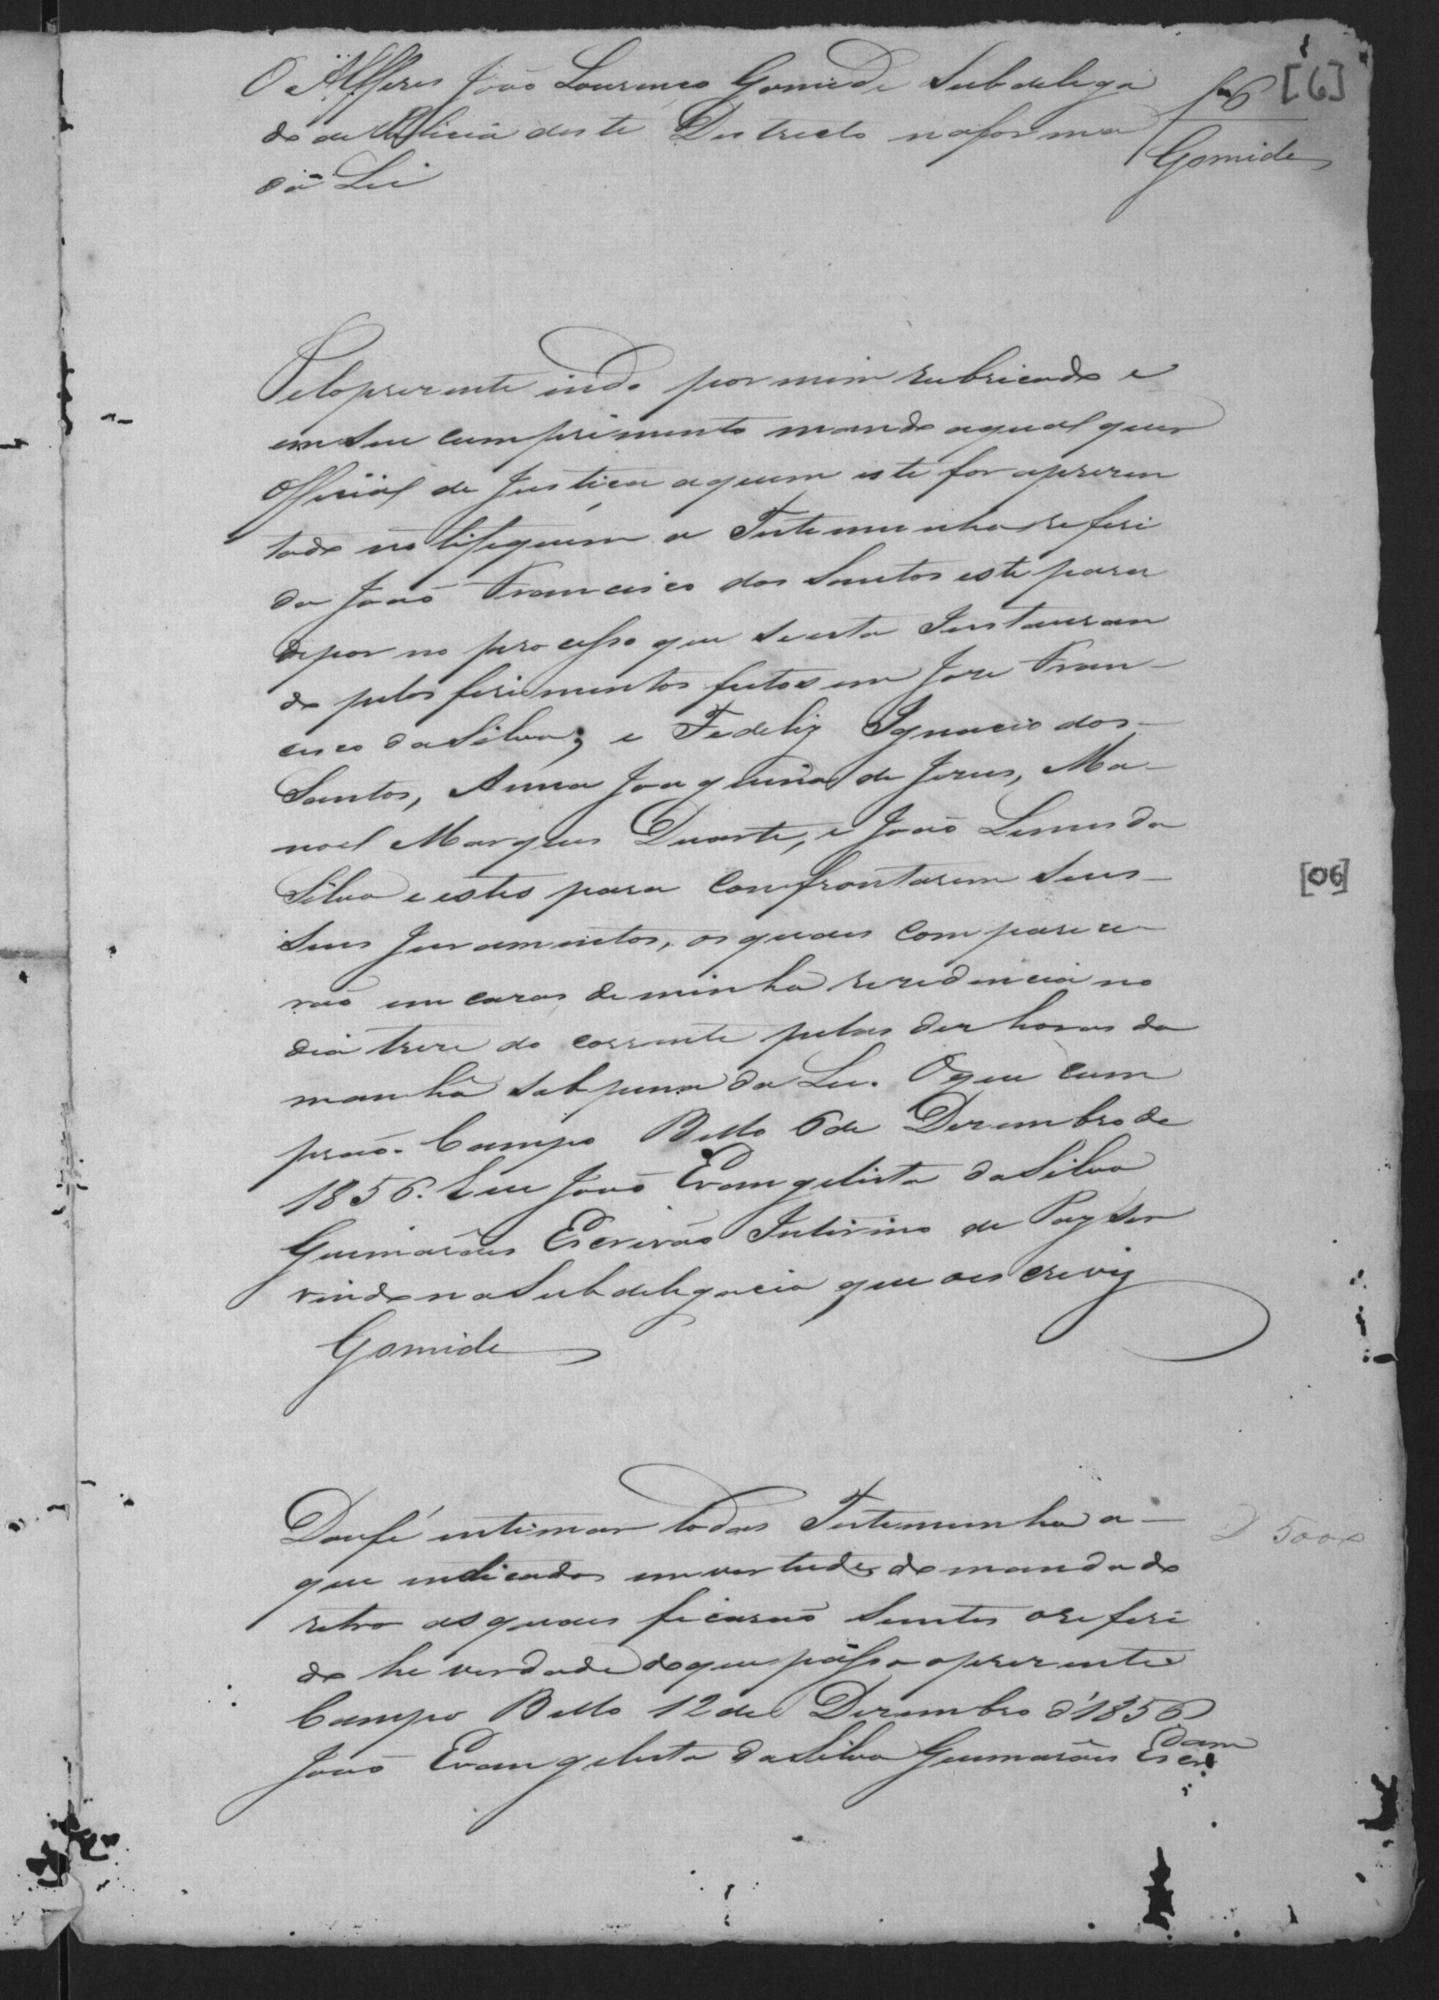 O Alferes João Lourenço Gomide Subdelega
do de Policia deste Destricto na forma
da Lei
fl 6
Gomide
[6]
Pelo prezente indo por mim rubricado e
em seu cumprimento mando a qual quer
Official de Justiça a quem este for aprezen
tado notifiquem a Testemunha referi
da João Francisco dos Santos este para
depor no processo que se esta Instauran
do pelos ferimentos feitos em Joze Fran-
cisco da Silva; e Fedeliz Ignacio dos-
Santos, Anna Joaquina de Jezus, Ma-
noel Marques Duarte, e João Lemes da
Silva e estes para confrontarem seus-
seus Juramentos, os quaes comparece
rão em cazas de minha rezidencia no
dia treze do corrente pelas dez horas da
manhã sob pena da Lei. O que cum
prão. Campo Bello 6 de Dezembro de
1856. Eu João Evangelista da Silva
Guimarães Escrivão Interino de Paz ser
vindo na Subdelegacia que o escreviz
Gomide
[06]
Dou fé intimar todas Testemunha a-
qui indicados em vertude do mandado
retro os quaes ficarão sientes o referi
do he verdade do que passo a prezente
Campo Bello 12 de Dezembro d'1856
João Evangelista da Silva Guimarães Escr
500